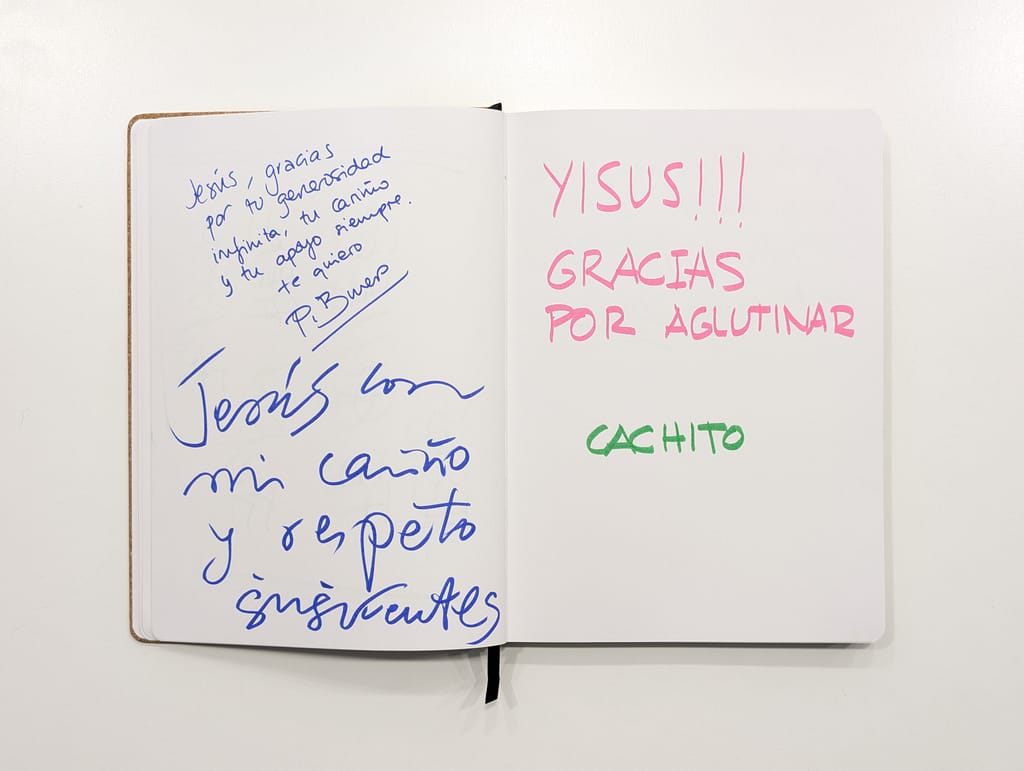 Jesús, gracias
por tu generosidad
infinita, tu cariño
y tu apoyo siempre.
te quiero
Jesús con
mi cariño
y respeto
YISUS!!!
GRACIAS
POR AGLUTINAR
CACHITO